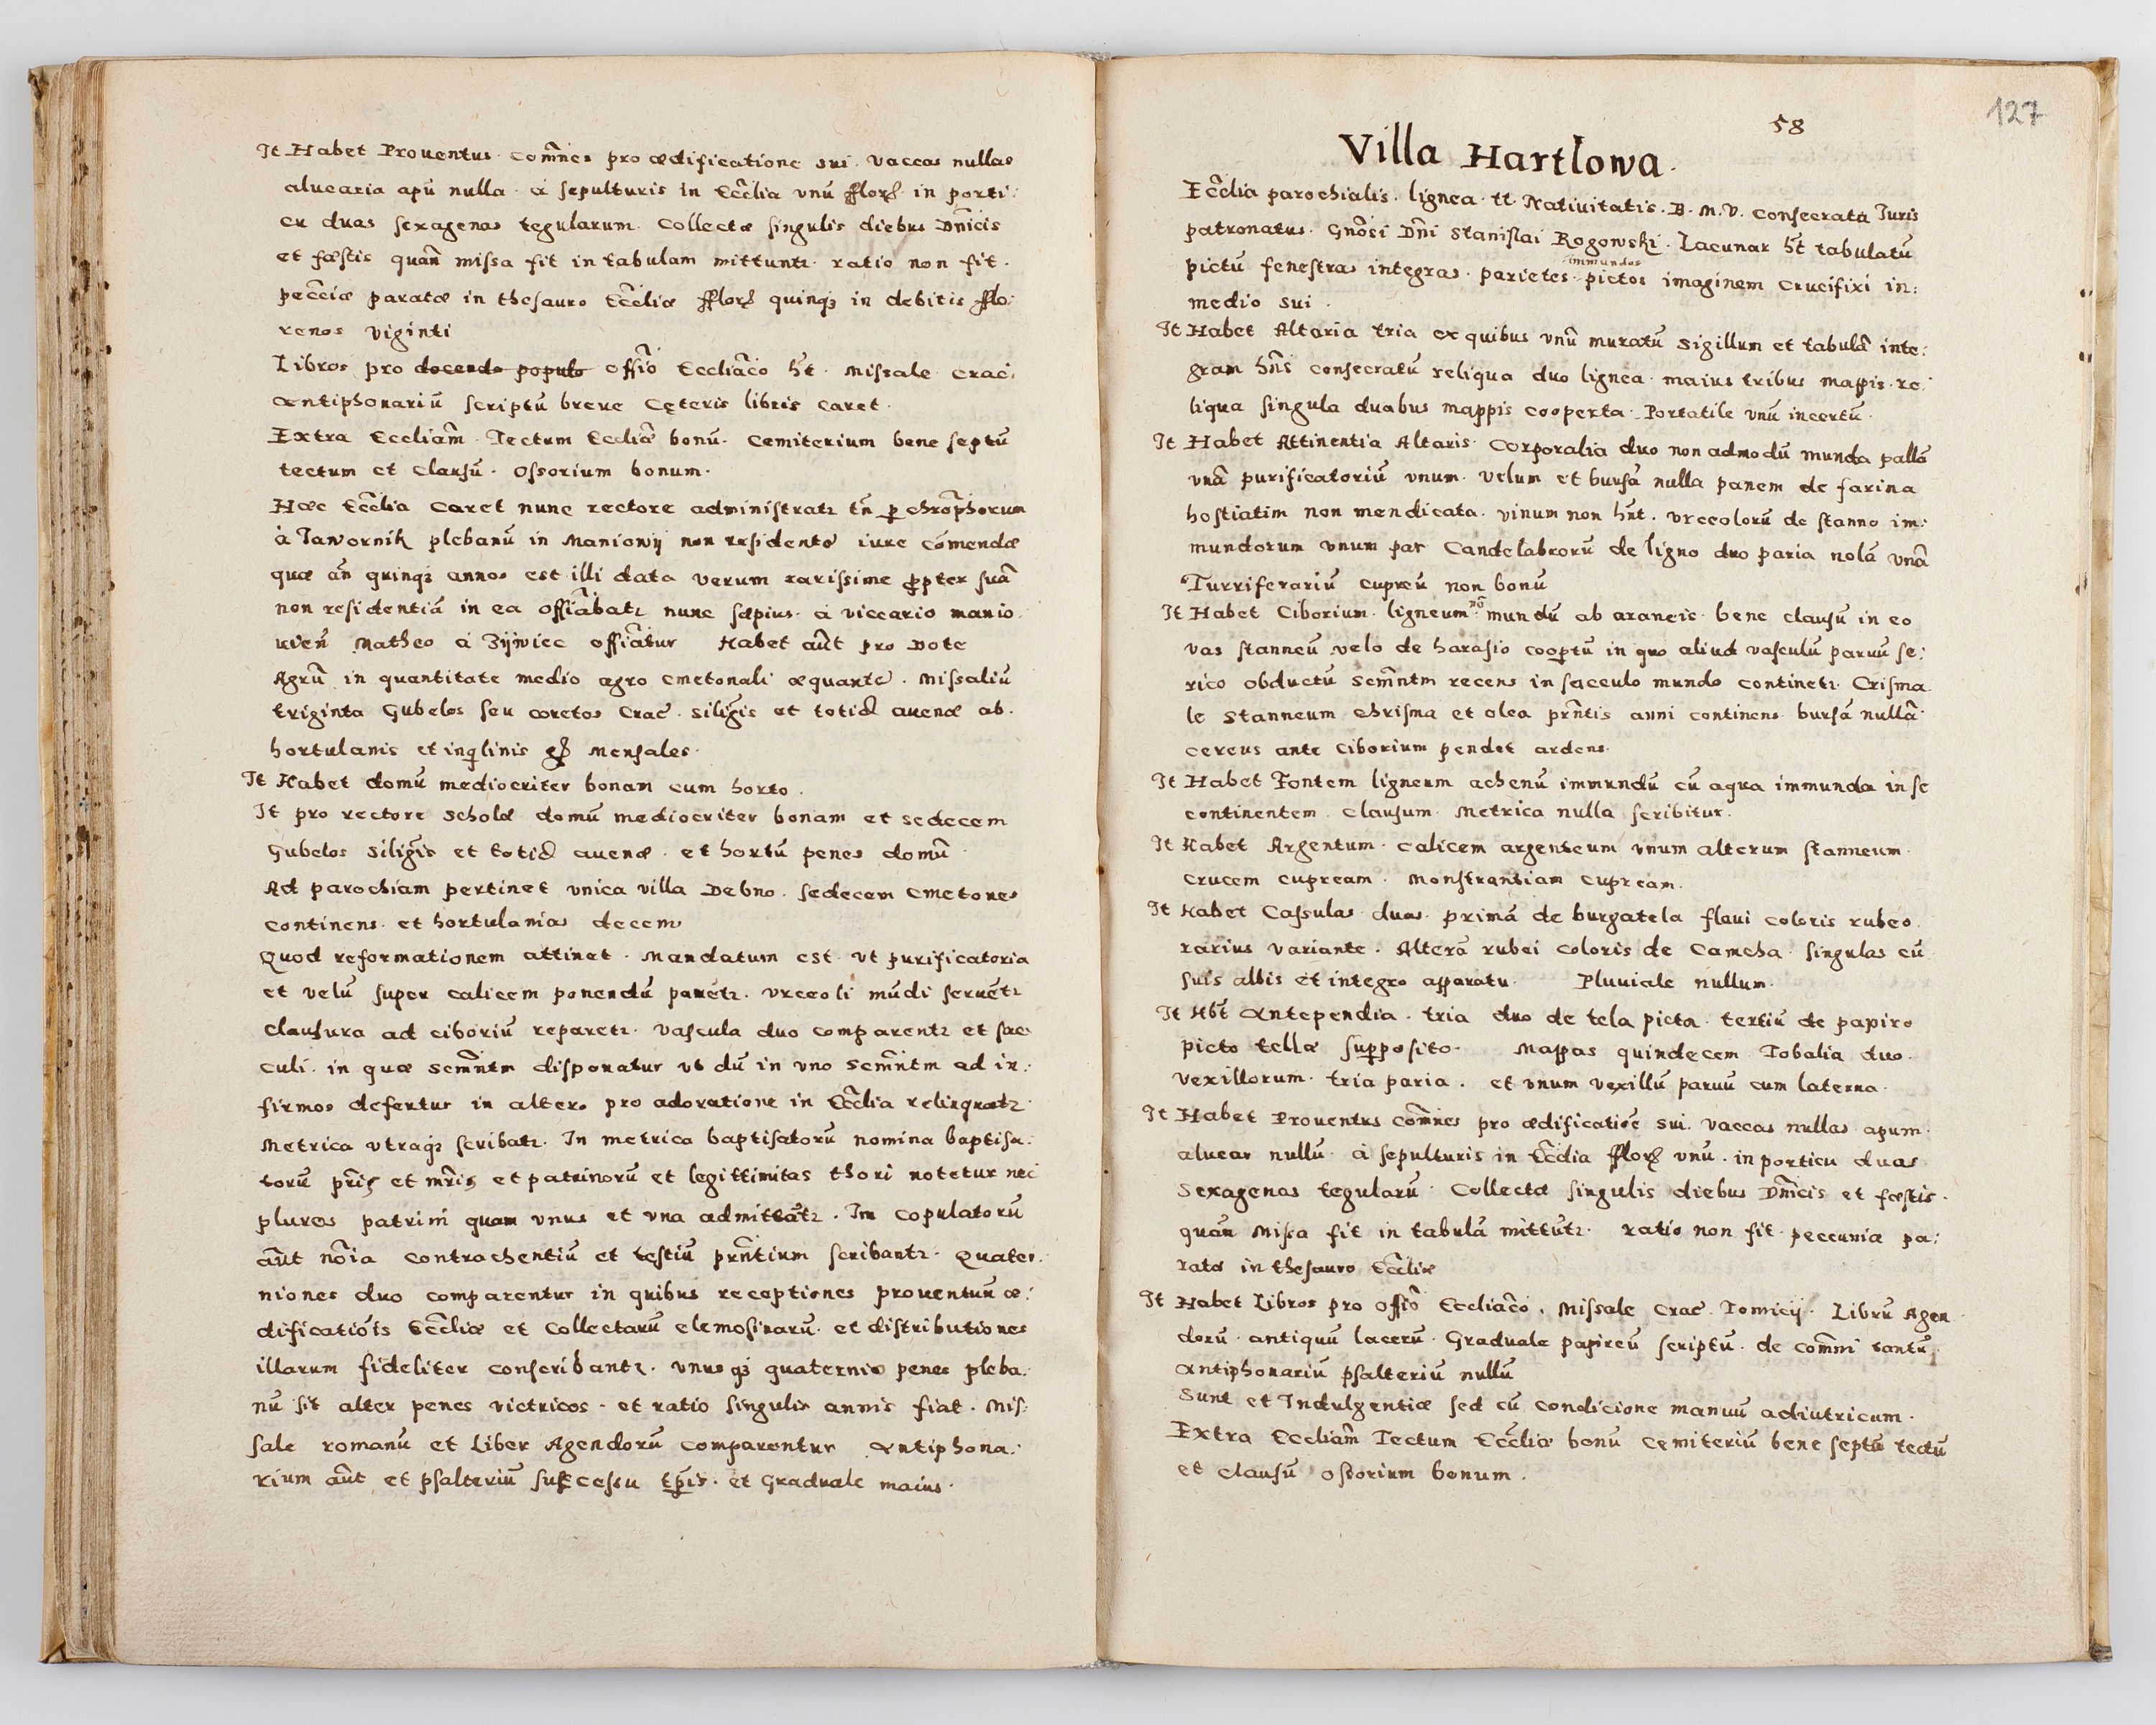 It Habet Prouentus com̃nes pro ædificatione sui. vaccas nullas
aluearia apũ nulla. à sepulturis in Eccl̃ia vnũ fflor. in porti:
cu duas sexagenas tegularum. Collectæ singulis diebus Dñicis
et fæstis quañ missa fit in tabulam mittunt. ratio non fit.
pecc̃iæ paratæ in thesauro Eccl̃iæ fflor. quinq3 in debitis fflo:
renos viginti
Libros pro docendo populo offĩo Eccliãco h̃t. Missale Crac:
Antiphonariũ scriptũ breue Cęteris libris caret.
Extra Eccliam̃. Tectum Ecclĩæ bonũ. Cemiterium bene septũ
tectum et clausũ. Ossorium bonum.
Hæc Eccl̃ia caret nunc rectore administrat tñ p chrõphorum
à Jawornik plebanũ in Maniowÿ non residente iure cõmendæ
quæ añ quinq3 annos est illi data verum rarissime propter suã
non residentiã in ea offiãbat nunc sæpius. à viccario manio
uieñ Matheo à Zÿwiec offiãtur Habet aũt pro Dote
Agrũ in quantitate medio agro cmetonali æquante. Missaliũ
triginta Gubelos seu coretos Crac. siligĩs et totid auenæ ab.
hortulanis et inqlinis mensales.
It Habet domũ mediocriter bonam cum horto.
It pro rectore scholæ domũ mediocriter bonam et sedecem
Gubelos siligĩs et totid auenæ. et hortũ penes domũ
Ad parochiam pertinet vnica villa Debno. sedecem Cmetones
continens. et hortulanias decem
Quod reformationem attinet. Mandatum est. vt purificatoria
et velũ super calicem ponendũ parẽt. vrceoli mũdi seruẽt
clausura ad ciboriũ reparet. vascula duo comparent et sac:
culi. in quæ Sem̃ntm disponatur vt dũ in vno Sem̃ntm ad in:
firmos defertur in altero pro adoratione in Eccl̃ia relinquat.
Metrica vtraq3 scribat. In metrica baptisatorũ nomina baptisa:
torũ pr̃is et mr̃is et patrinorũ et legittimitas thori notetur nec
plures patrini quam vnus et vna admittãt. In copulatorũ
aũt nõia contrachentiũ et testiũ prñtium scribant. Quater:
niones duo comparentur in quibus receptiones prouentuũ æ:
dificatiõis Eccl̃iæ et Collectarũ elemosinarũ. et distributiones
illarum fideliter conscribant. vnusq3 quaternio penes pleba:
nũ sit alter penes victricos. et ratio singulis annis fiat. Mis:
sale romanũ et Liber Agendorũ comparentur Antiphona:
rium aũt et psalteriũ successu tp̃is. et Graduale maius.
127
58
Villa Hartlowa.
Eccl̃ia parochialis. lignea. tt. Natiuitatis. B. M. V. consecrata Iuris
patronatus. Gnõsi Dñi Stanislai Rogowski. Lacunar h̃t tabulatũ
pictũ fenestras integras. parietes immundos pictos imaginem crucifixi in:
medio sui.
It Habet Altaria tria ex quibus vnũ muratũ sigillum et tabulã inte:
gram hñs consecratũ reliqua duo lignea. maius tribus mappis. re:
liqua singula duabus mappis cooperta. Portatile vnũ incertũ.
It Habet Attinentia Altaris. Corporalia duo non admodũ munda pallã
vnã purificatoriũ vnum. Velum et bursã nulla panem de farina
hostiatim non mendicata. vinum non hñt. vrceolorũ de stanno im:
mundorum vnum par Candelabrorũ de ligno duo paria nolã vnã
Turriferariũ cupreũ non bonũ
It Habet Ciborium. ligneum nõ mundũ ab araneis. bene clausũ in eo
vas stanneũ velo de harasio coopertũ in quo aliud vasculũ paruũ se:
rico obductũ Sem̃ntm recens in sacculo mundo continet. Crisma
le Stanneum chrisma et olea prñtis anni continens bursã nullã
cereus ante Ciborium pendet ardens.
It Habet Fontem ligneum achenũ immundũ cũ aqua immunda in se
continentem. clausum. Metrica nulla scribitur.
It Habet Argentum. calicem argenteum vnum alterum stanneum.
crucem cupream. Monstrantiam cupream.
It Habet Casulas duas. primã de burgatela flaui coloris rubeo.
rarius variante. Alterã rubei coloris de Camcha. singulas cũ
suis albis et integro apparatu. Pluuiale nullum.
It Hb̃t Antependia. tria duo de tela picta. tertiũ de papiro
picto tellæ supposito. Mappas quindecem Tobalia duo.
Vexillorum. tria paria. et vnum vexillũ paruũ cum laterna.
It Habet Prouentus com̃nes pro ædificatiõe sui. vaccas nullas apum.
aluear nullũ. à sepulturis in Eccl̃ia fflor. vnũ. in porticu duas
sexagenas tegularũ. Collectæ singulis diebus Dñicis et fæstis.
quañ Missa fit in tabulã mittũt. ratio non fit. peccunia pa:
rata in thesauro Eccl̃iæ
It Habet Libros pro offĩo Eccliãco. Missale Crac. Tomicij. Librũ Agen
dorũ. antiquũ lacerũ. Graduale papireũ scriptũ. de com̃ni tantũ.
Antiphonariũ psalteriũ nullũ
Sunt et Indulgentiæ sed cũ condicione manuũ adiutricum.
Extra Eccliam̃ Tectum Eccl̃iæ bonũ cemiteriũ bene septũ tectũ
et clausũ ossorium bonum.